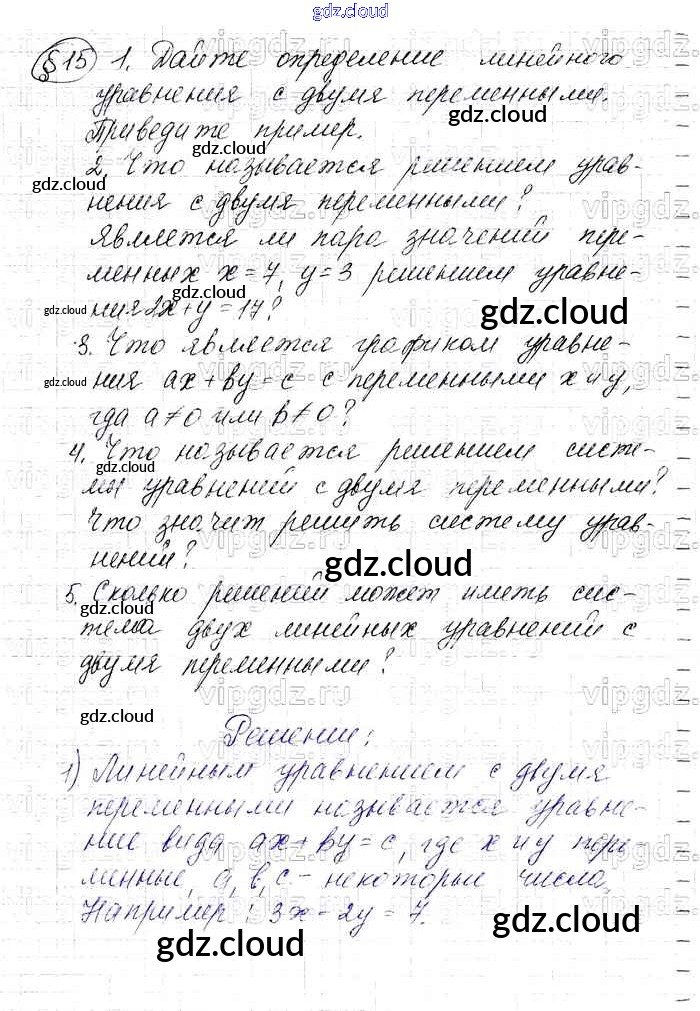 gdz.cloud
§15 1. Дайте определение линейного
уравнения с двумя переменными.
gdz.cloud
Приведите пример.
gdz.cloud
2. Что называется решением урав-
gdz.cloud
нения с двумя переменными?
Является ли пара значений пере-
менных x=7, y=3 решением уравне-
gdz.cloud
gdz.cloud
ния 2x+y=17?
gdz.cloud
3. Что является графиком уравне-
gdz.cloud
ния ax+by=c с переменными x и y,
где a≠0 или b≠0?
4. Что называется решением систе-
gdz.cloud
мы уравнений с двумя переменными?
Что значит решить систему урав-
нений?
gdz.cloud
5. Сколько решений может иметь сис-
тема двух линейных уравнений с
двумя переменными?
gdz.cloud
Решение:
1) Линейным уравнением с двумя
переменными называется уравне-
ние вида ax+by=c, где x и y пере-
менные, a, b, c - некоторые числа.
Например: 3x-2y=7.
gdz.cloud
gdz.cloud
vipgdz.ru